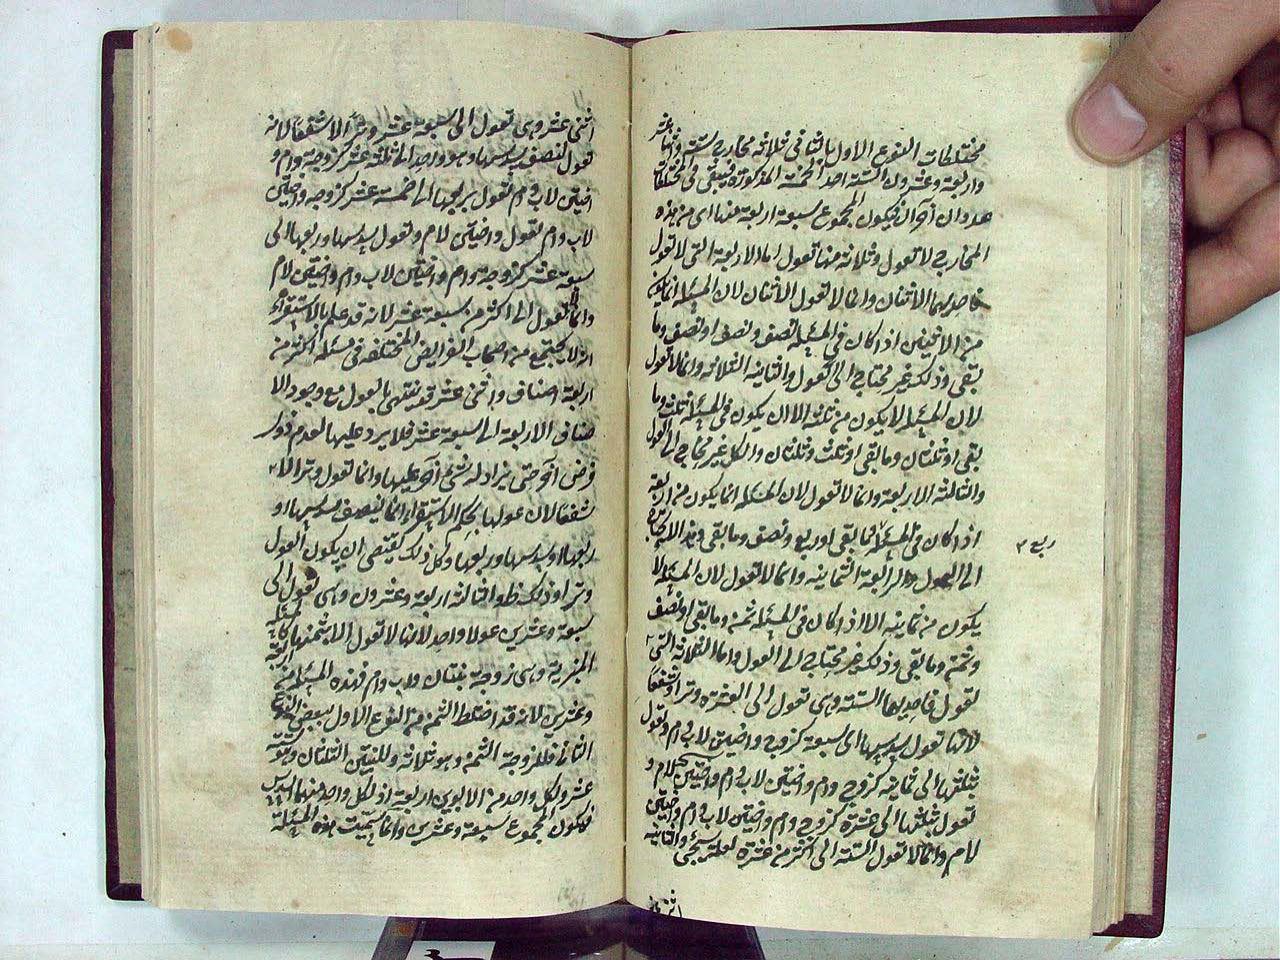 مختلطات النوع الاول بالثاني ثلاثة مخارج ستة واثنا عشر
واربعة وعشرون الستة احد الخمسة المذكورة فيبقى في المختلطات
عددان آخران فيكون المجموع سبعة اربعة منها اى من هذه
المخارج لا تعول وثلاثة منها تعول اما الاربعة التى لا تعول
فاحديها الاثنان وانما لا تعول الاثنان لان المسئلة انما يكون
من الاثنين اذا كان في المسئلة نصف ونصف او نصف وما
بقى وذلك غير محتاج الى العول والثانية الثلاثة وانما لا تعول
لان المسئلة لا يكون من ثلثة الا ان يكون في المسئلة ثلث وما
بقى او ثلثان وما بقى او ثلث وثلثان والكل غير محتاج الى العول
والثالثة الاربعة وانما لا تعول لان المسئلة انما يكون من اربعة
اذا كان في المسئلة ما بقى او ربع ونصف وما بقى
ربع
الى العول والرابعة الثمانية وانما لا تعول لان المسئلة لا
يكون من ثمانية الا اذا كان في المسئلة ثمن وما بقى او نصف
وثمن وما بقى وذلك غير محتاج الى العول واما الثلاثة التى
تعول فاحديها الستة وهى تعول الى العشرة وترا وشفعا
لانها تعول بسدسها الى سبعة كزوج واختين لاب وام وتعول
بثلثها الى ثمانية كزوج وام واختين لاب وام واختين لام و
تعول بثلثيها الى عشرة كزوج وام واختين لاب وام واختين
لام وانما لا تعول الستة الى اكثر من عشرة لعلة ستجئ والثانية
اثنى عشر وهى تعول الى سبعة عشر وترا لا شفعا لانه
تعول لنصف سدسها وهو واحد الى ثلثة عشر كزوجة وام و
اختين لاب وام تعول بربعها الى خمسة عشر كزوجة واختين
لاب وام تعول واختين لام وتعول بسدسها وربعها الى
سبعة عشر كزوجة وام واختين لاب وام واختين لام
وانما تعول الى اكثر من سبعة عشر لانه قد علم بالاستقراء
انه لا يجتمع من اصحاب الفرايض المختلفة في مسئلة اكثر من
اربعة اصناف واثنى عشر قد ينتهى بالعول مع وجود الا
صناف الاربعة الى سبعة عشر فلا يرد عليها لعدم ذى
فرض آخر حتى يزاد له شئ آخر عليها وانما تعول وترا لا
شفعا لان عولها بحكم الاستقراء انما بنصف سدسها او
ربعها او سدسها وربعها وكل ذلك يقتضى ان يكون العول
وترا وذلك ظ والثالثة اربعة وعشرون وهى تعول الى
سبعة وعشرين عولا واحدا لانها لا تعول الا بثمنها كالمسئلة
المنبرية وهى زوجة وبنتان واب وام فهذه المسئلة من اربعة
وعشرين لانه قد اختلط الثمن من النوع الاول ببعض النوع
الثانى فللزوجة الثمن وهو ثلاثة وللبنتين الثلثان وهو ستة
عشر ولكل واحد من الابوين اربعة اذ لكل واحد منهما السدس
فيكون المجموع سبعة وعشرين وانما سميت هذه المسئلة